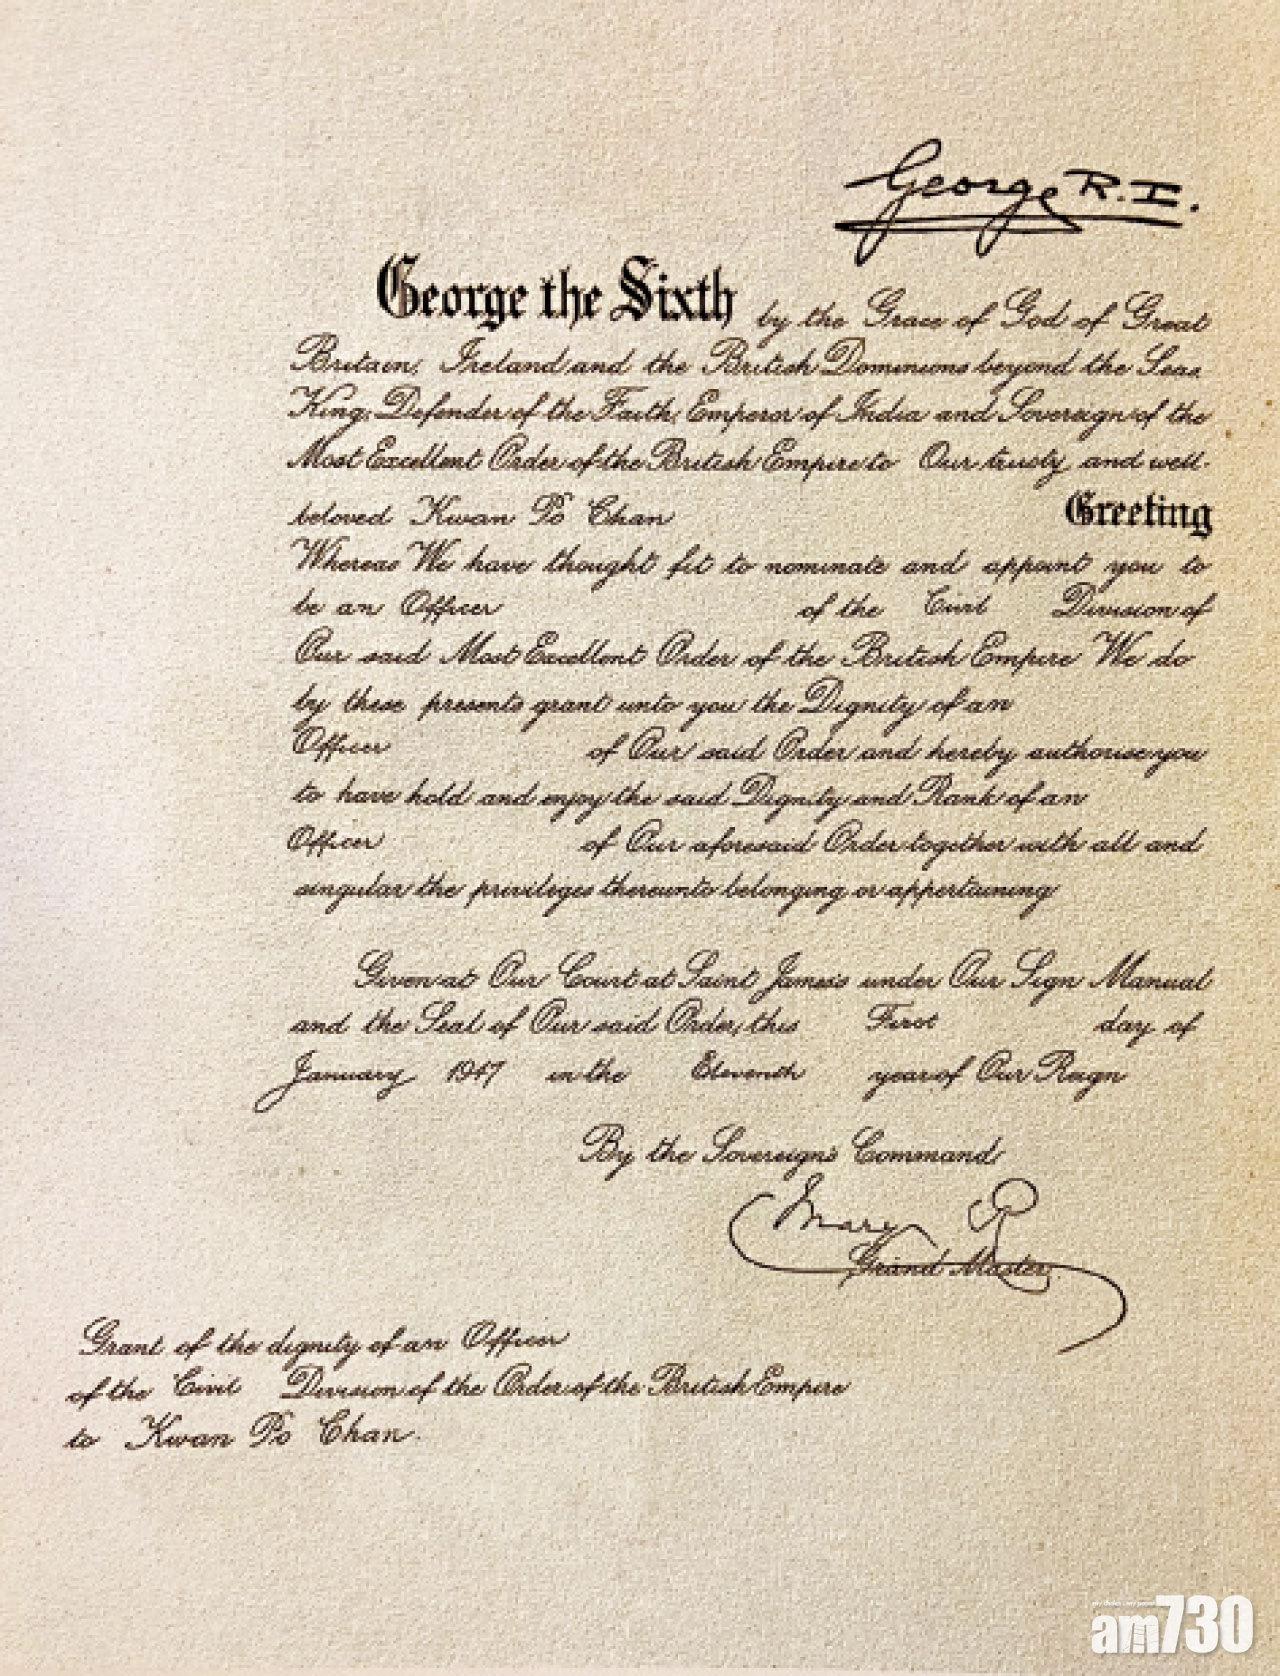 George R.I.
George the Sixth by the Grace of God of Great
Britain, Ireland and the British Dominions beyond the Seas
King, Defender of the Faith, Emperor of India and Sovereign of the
Most Excellent Order of the British Empire to Our trusty and well-
beloved Kwan Po Chan Greeting
Whereas We have thought fit to nominate and appoint you to
be an Officer of the Civil Division of
Our said Most Excellent Order of the British Empire We do
by these presents grant unto you the Dignity of an
Officer of Our said Order and hereby authorise you
to have hold and enjoy the said Dignity and Rank of an
Officer of Our aforesaid Order together with all and
singular the privileges thereunto belonging or appertaining
Given at Our Court at Saint James's under Our Sign Manual
and the Seal of Our said Order, this First day of
January 1947 in the Eleventh year of Our Reign
By the Sovereign's Command
Mary R
Grand Master.
Grant of the dignity of an Officer
of the Civil Division of the Order of the British Empire
to Kwan Po Chan.
am730